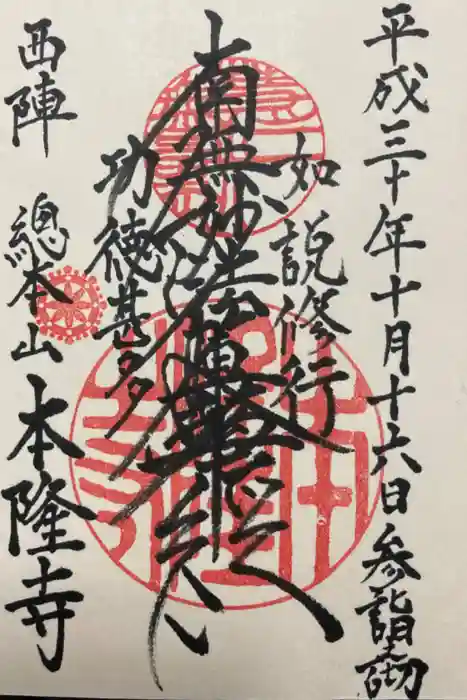 平成三十年十月十六日参詣之砌
如説修行
南無妙法蓮華経
功徳甚多
西陣 總本山 本隆寺